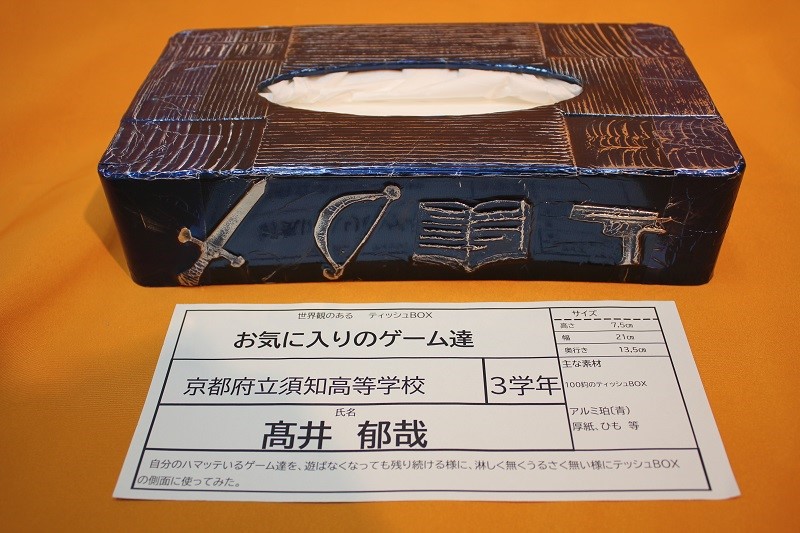 世界観のある ティッシュBOX
お気に入りのゲーム達
京都府立須知高等学校 3学年
氏名
髙井 郁哉
サイズ
高さ 7,5㎝
幅 21㎝
奥行き 13,5㎝
主な素材
100均のティッシュBOX
アルミ珀(青)
厚紙、ひも 等
自分のハマッテいるゲーム達を、遊ばなくなっても残り続ける様に、淋しく無くうるさく無い様にテッシュBOX
の側面に使ってみた。